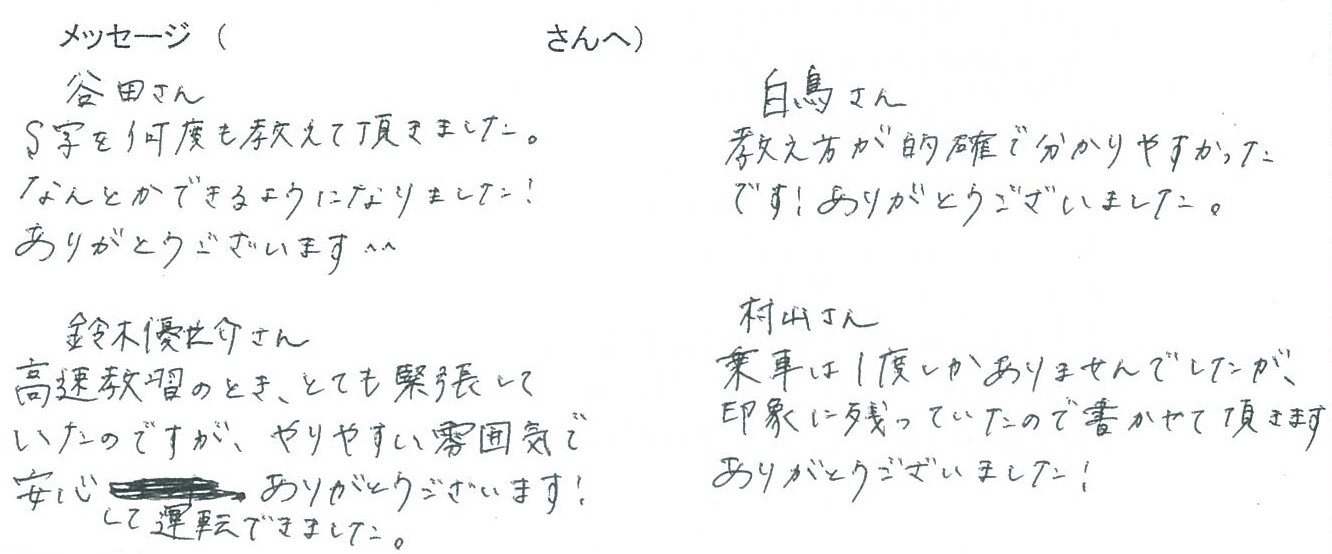 メッセージ（　　　　　　　　さんへ）
谷田さん
S字を何度も教えて頂きました。
なんとかできるようになりました！
ありがとうございます^^
鈴木優世介さん
高速教習のとき、とても緊張して
いたのですが、やりやすい雰囲気で
安心 ありがとうございます！
して運転できました。
白鳥さん
教え方が的確で分かりやすかった
です！ありがとうございました。
村山さん
乗車は1度しかありませんでしたが、
印象に残っていたので書かせて頂きます
ありがとうございました！